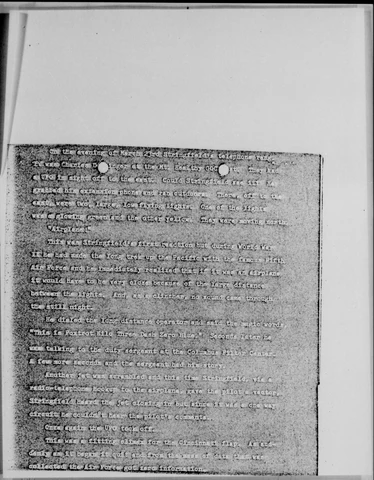 On the evening of March 23rd Stringfield's telephone rang.
It was Charles Deininger at the Mt. Healthy GOC post. They had
a UFO in sight off to the east. Could Stringfield see it? He
grabbed his extension phone and ran outdoors. There, off to the
east, were two, large, low flying lights. One of the lights
was a glowing green and the other yellow. They were moving north.
"Airplane!"
This was Stringfield's first reaction but during World War
II he had made the long trek up the Pacific with the famous Fifth
Air Force and he immediately realized that if it was an airplane
it would have to be very close because of the large distance
between the lights. And, as a clincher, no sound came through
the still night.
He dialed the long distance operator and said the magic words,
"This is Foxtrot Kilo Three Dash Zero Blue." Seconds later he
was talking to the duty sergeant at the Columbus Filter Center.
A few more seconds and the sergeant had his story.
Another jet was scrambled and this time Stringfield, via a
radio-telephone hookup to the airplane, gave the pilot a vector.
Stringfield heard the jet closing in but since it was a one way
circuit he couldn't hear the pilot's comments.
Once again the UFO took off.
This was a fitting climax for the Cincinnati flap. As sud-
denly as it began it quit and from the mass of data that was
collected the Air Force got zero information.